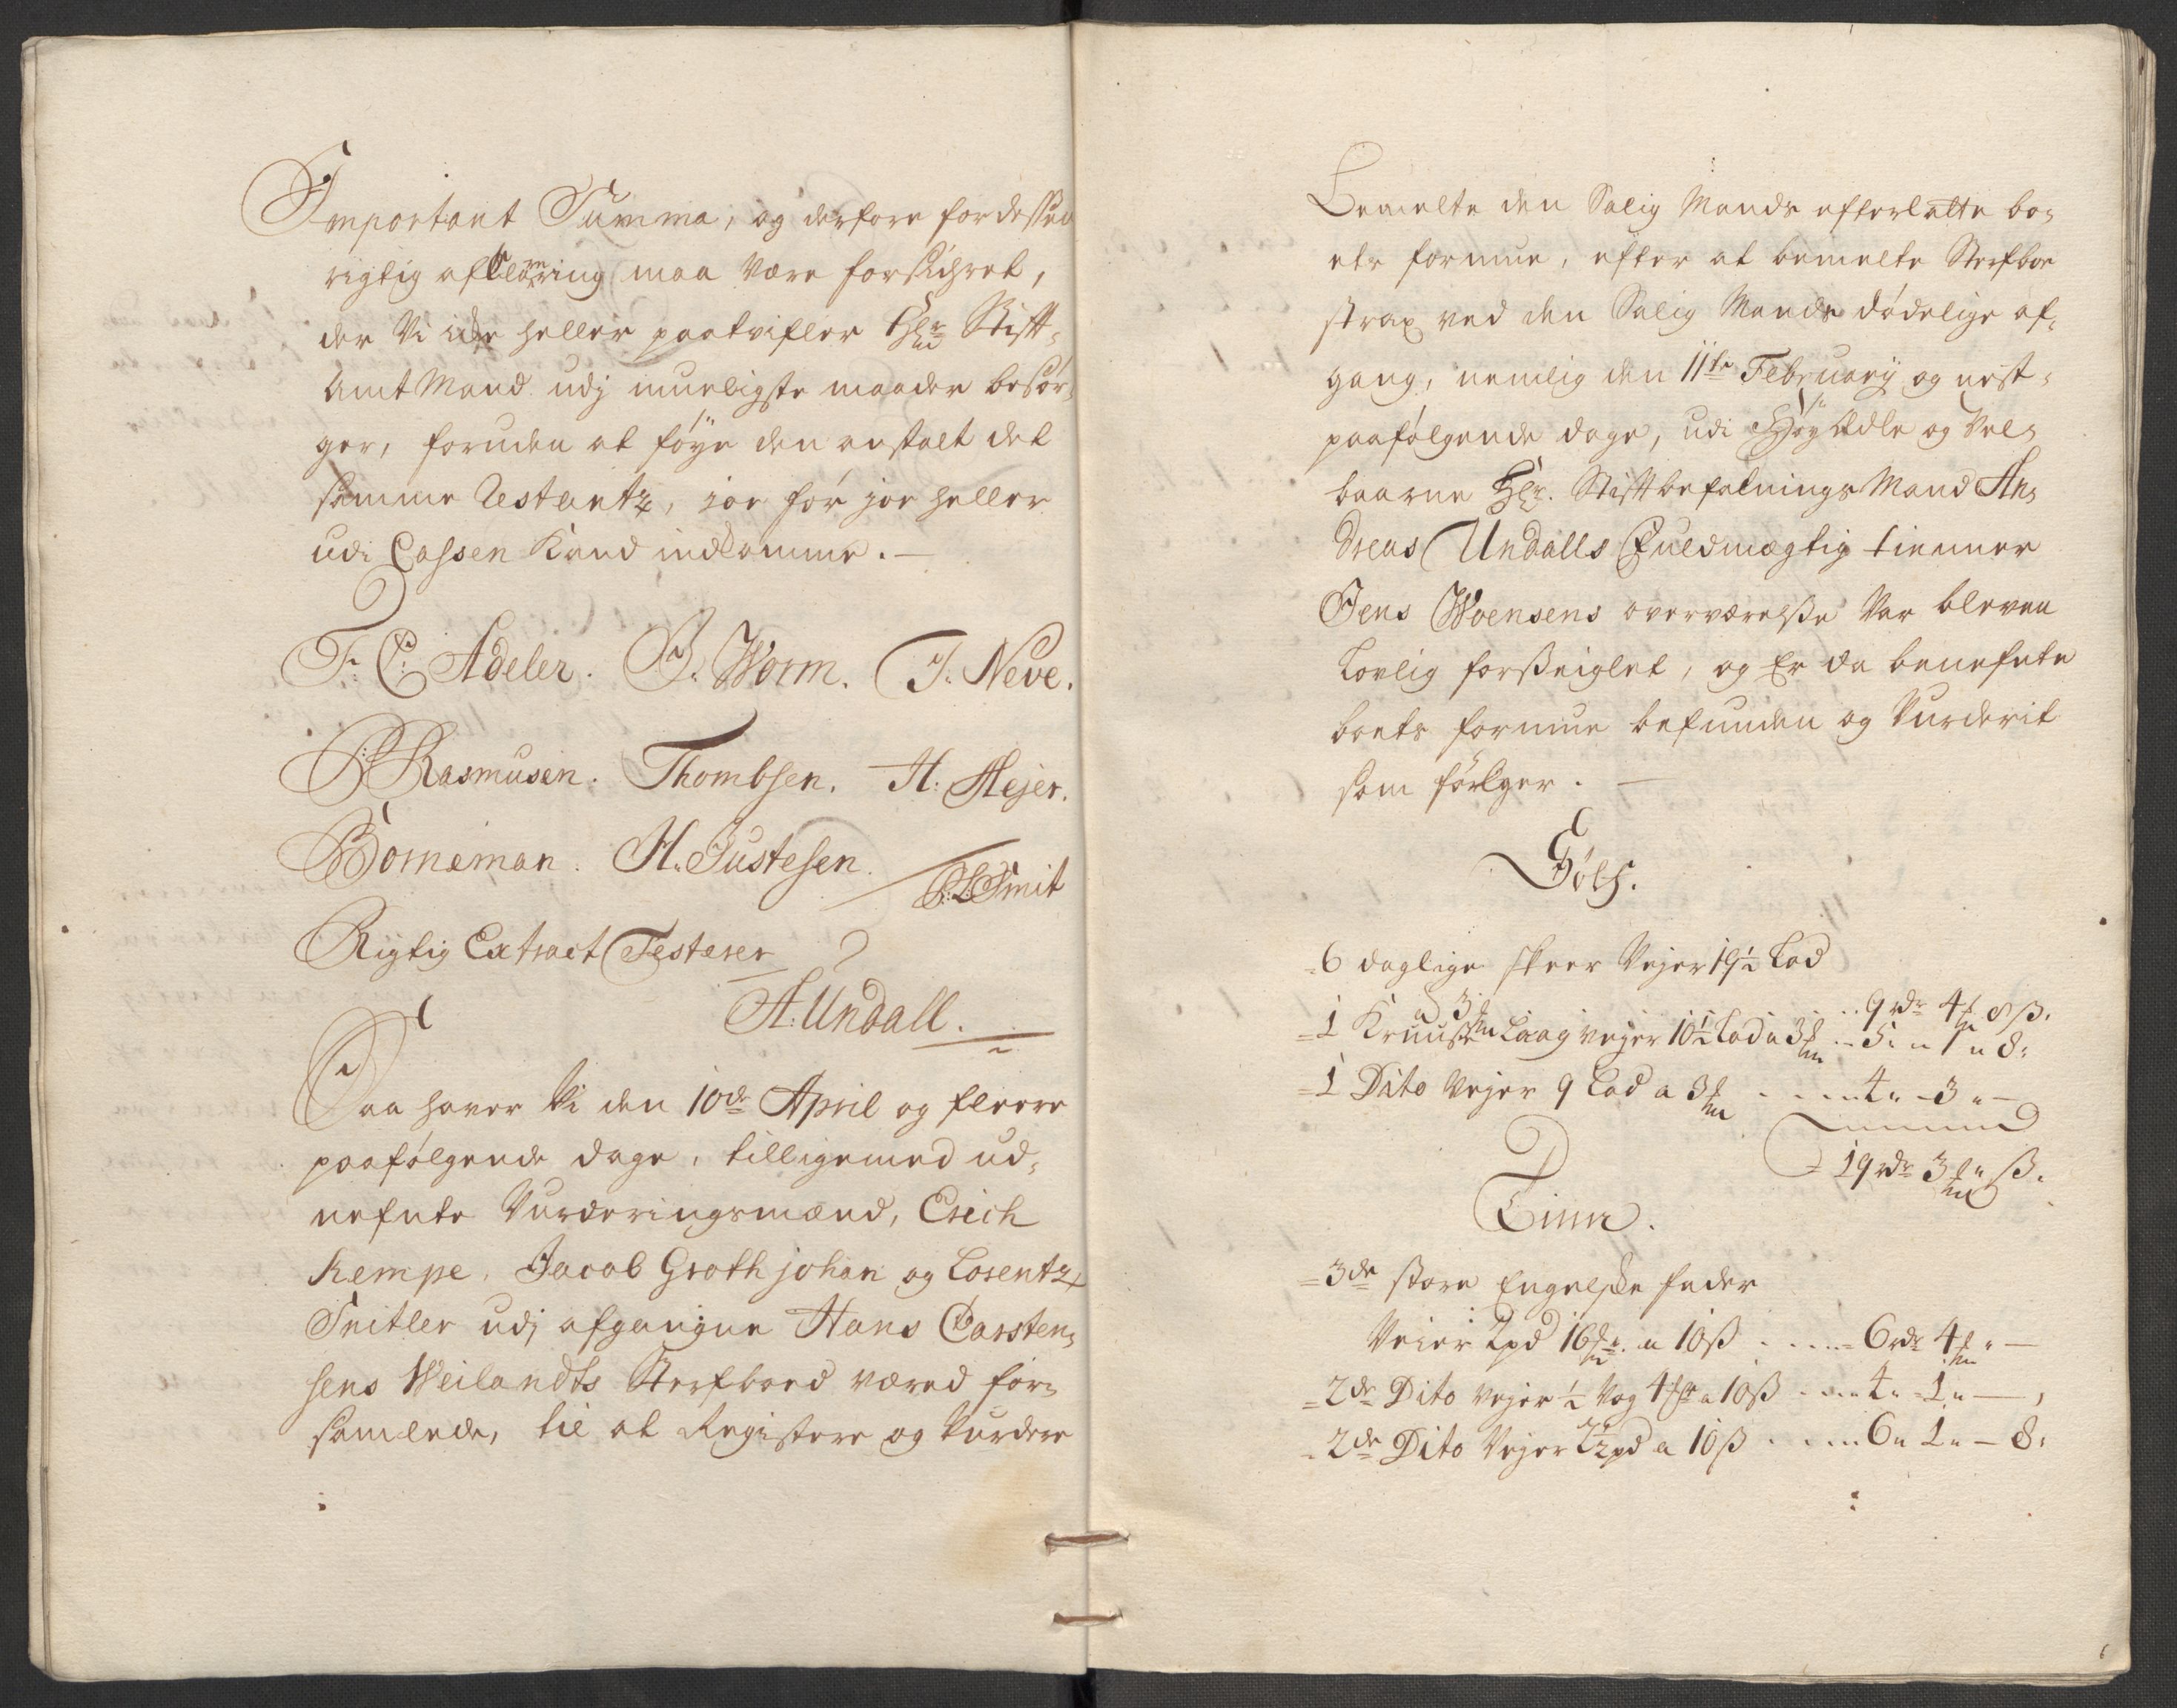 Important Summa, og derfore for dessen
rigtig aflevering maa være forsichret,
der Vi icke heller paatvifler Hr Stift-
AmtMand udj mueligste maader besør-
ger, foruden at føye den anstalt det
samme Restantz, joe før joe heller
udi Cassen Kand indkomme.
F. C. Adeler. J. Worm. J. Neve.
P Rasmusen. Thombsen. H: Mejer.
Bornæman. H. Justesen.
P: L: Smit
Rigtig Extract Testerer
A. Undall.
Saa hafver Vi den 10de April og fleere
paafølgende dage, tilligemed ud-
nefnte Vurderingsmænd, Erich
Kempe, Jacob Grothjohan og Lorentz
Snitler udj afgangne Hans Carsten-
sens Weilandts Sterfboed været for-
samlede, til at Registere og Vurdere
Bemelte den Salig Mands efterlatte bo-
ets formue, efter at bemelte Sterfboe
strax ved den Salig Mands dødelige af-
gang, nemlig den 11te February og nest-
paafølgende dage, udi HøyÆdle og Vel-
baarne Hr. StiftbefalningsMand An-
dreas Undalls Fuldmægtig tienner
Jens Woensens overværelsse Var bleven
Lovlig forsseiglet, og Er da benefnte
boets formue befunden og Vurderit
som følger.
Sølf.
6 daglige skeer Vejer 19½ Lod
a 3 . . 9 rdr 4 8 ß.
1 Kruuse Laag vejer 10½ Lod a 3 . . 5 " 1 " 8
1 Dito Vejer 9 Lod a 3 . . . . 4 " 3 " —
19 rdr 3 " ß.
Tinn.
3de store Engelske fader
Veier Lpd 16 a 10 ß . . . . 6 rdr 4 " —
2de Dito vejer ½ Vog 4 a 10 ß . . . 4 " 1 " —
2de Dito Vejer pd a 10 ß . . . . 6 " 1 " — 8
6